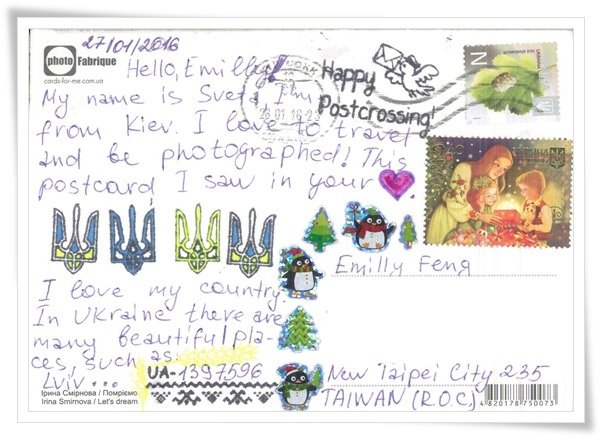 27/01/2016
photo Fabrique
cards-for-me.com.ua
Hello, Emilly!
My name is Sveta, I'm
from Kiev. I love to travel
and be photographed! This
postcard I saw in your
Happy
Postcrossing!
N
I love my country.
In Ukraine there are
many beautiful pla-
ces, such as:
Lviv ...
UA-1397596
Ірина Смірнова / Помріємо
Irina Smirnova / Let's dream
Emilly Feng
New Taipei City 235
TAIWAN (R.O.C.)
4820178750073